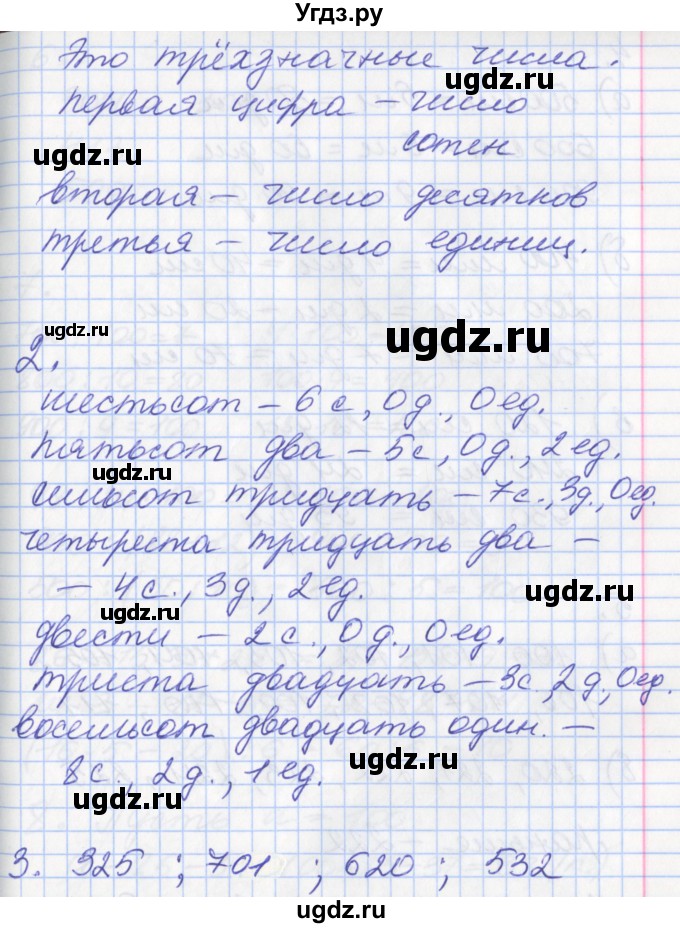 Угдз.ру
Это трёхзначные числа.
первая цифра – число
сотен
ugdz.ru
вторая – число десятков
третья – число единиц.
ugdz.ru
ugdz.ru
2.
шестьсот – 6 с., 0 д., 0 ед.
пятьсот два – 5 с., 0 д., 2 ед.
ugdz.ru
семьсот тридцать – 7 с., 3 д., 0 ед.
четыреста тридцать два –
– 4 с., 3 д., 2 ед.
ugdz.ru
ugdz.ru
двести – 2 с., 0 д., 0 ед.
триста двадцать – 3 с., 2 д., 0 ед.
восемьсот двадцать один. –
ugdz.ru
8 с., 2 д., 1 ед.
ugdz.ru
3. 325 ; 701 ; 620 ; 532
ugdz.ru